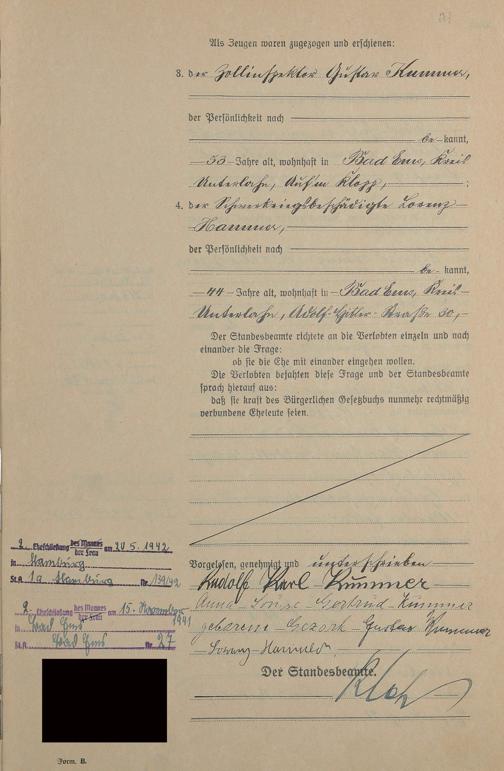 Als Zeugen waren zugezogen und erschienen:
3. der Zollinspektor Gustav Kummer,
der Persönlichkeit nach
be kannt,
53 Jahre alt, wohnhaft in Bad Ems, Kreis
Unterlahn, Auf'm Klopp, ;
4. der Schwerkriegsbeschädigte Lorenz
Hammer,
der Persönlichkeit nach
be kannt,
44 Jahre alt, wohnhaft in Bad Ems, Kreis
Unterlahn, Adolf-Hitler-Straße 30,
Der Standesbeamte richtete an die Verlobten einzeln und nach
einander die Frage:
ob sie die Ehe mit einander eingehen wollen.
Die Verlobten bejahten diese Frage und der Standesbeamte
sprach hierauf aus:
daß sie kraft des Bürgerlichen Gesetzbuchs nunmehr rechtmäßig
verbundene Eheleute seien.
Vorgelesen, genehmigt und unterschrieben
Rudolf Karl Kummer
Anna Gertrud Kummer
geborene Gustav Kummer
Der Standesbeamte.
2. Eheschließung des Mannes der Frau am 20.5.1942
in Hamburg
St.A. 1a Hamburg Nr. 139/42
2. Eheschließung des Mannes der Frau am 15. November
1941
in Bad Ems
St.A. Bad Ems Nr. 27
Form. B.